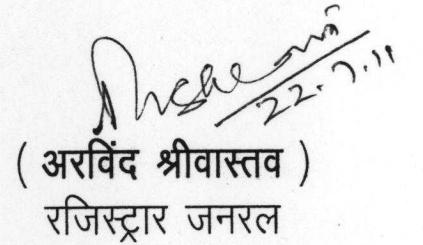 22.7.11
( अरविंद श्रीवास्तव )
रजिस्ट्रार जनरल